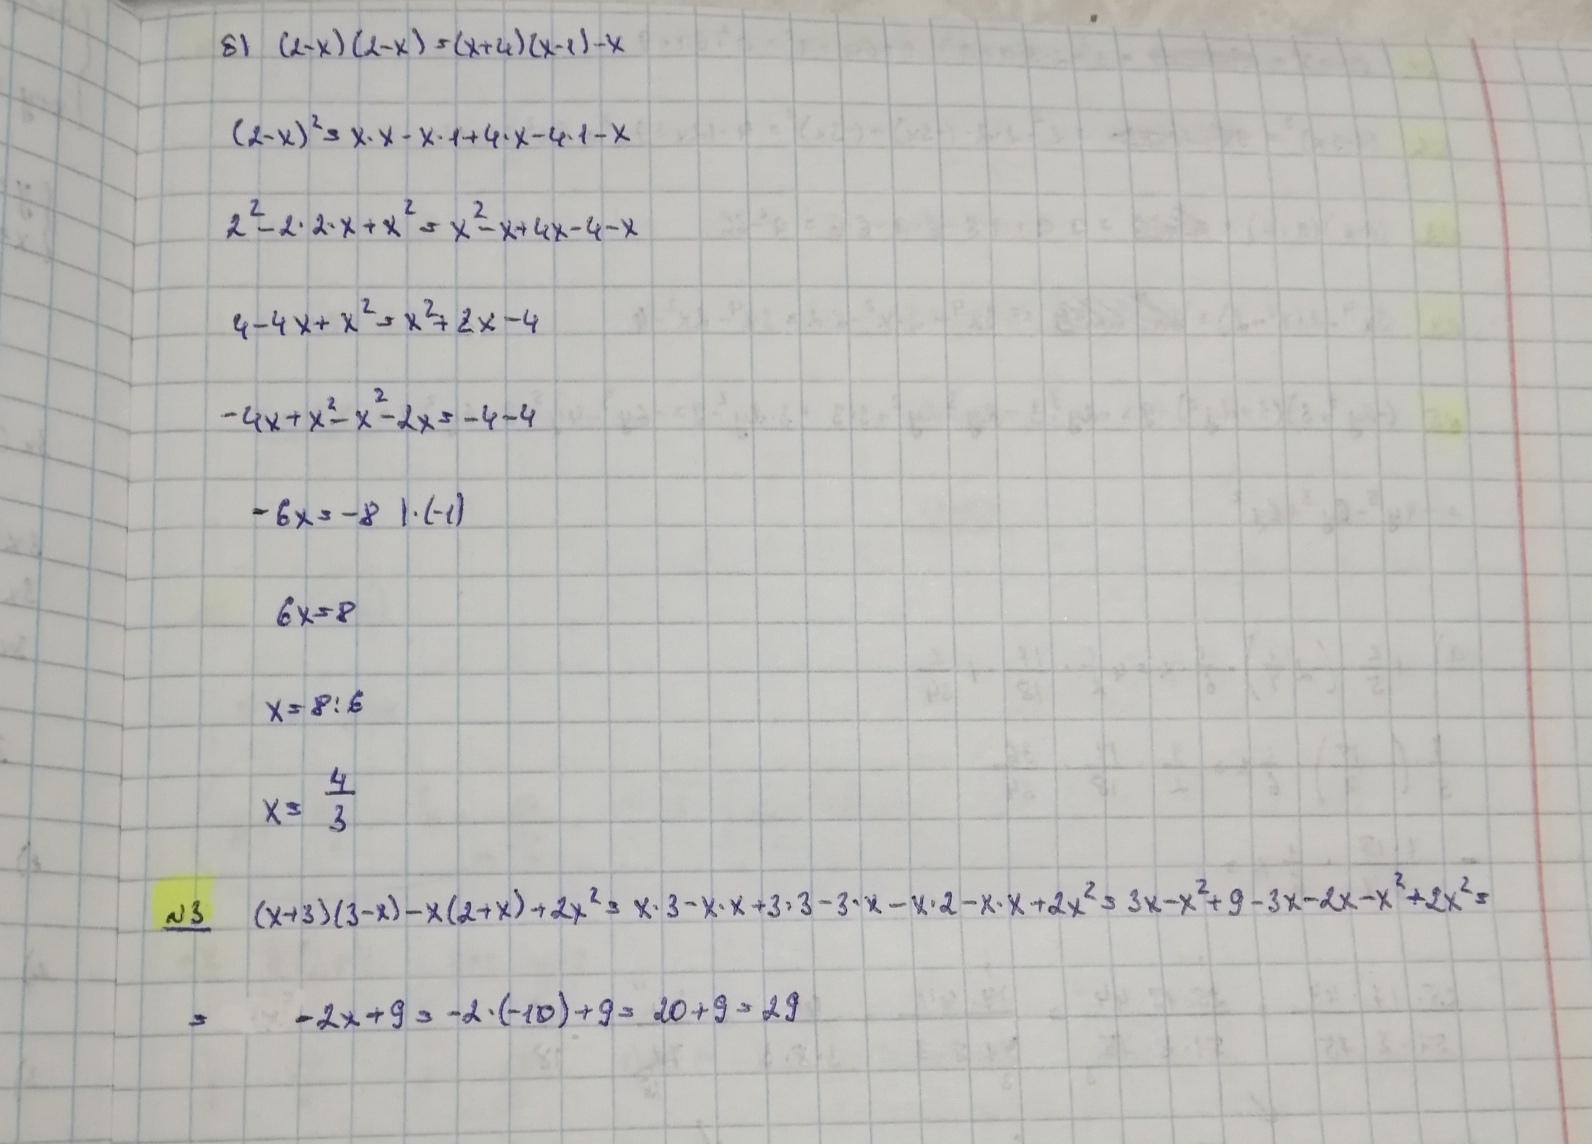 б) (2-x)(2-x)=(x+4)(x-1)-x
(2-x)²=x·x-x·1+4·x-4·1-x
2²-2·2·x+x²=x²-x+4x-4-x
4-4x+x²=x²+2x-4
-4x+x²-x²-2x=-4-4
-6x=-8 |·(-1)
6x=8
x=8:6
x=4/3
№3 (x+3)(3-x)-x(2+x)+2x²=x·3-x·x+3·3-3·x-x·2-x·x+2x²=3x-x²+9-3x-2x-x²+2x²=
= -2x+9=-2·(-10)+9=20+9=29